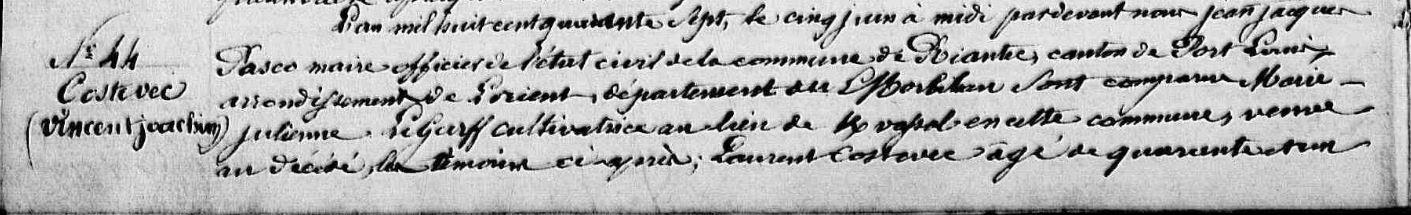 L'an mil huit cent quarante sept, le cinq juin à midi pardevant nous jean jacques
N° 44
Costevec
(Vincent joachim)
Pasco maire officier de l'état civil de la commune de Riantec, canton de Port Louis
arrondissement de Lorient, département du Morbihan sont comparus Marie
julienne Le Gurff cultivatrice au lieu de en cette commune, veuve
au décédé, les témoins ci après, Laurent Costevec âgé de quarante et un